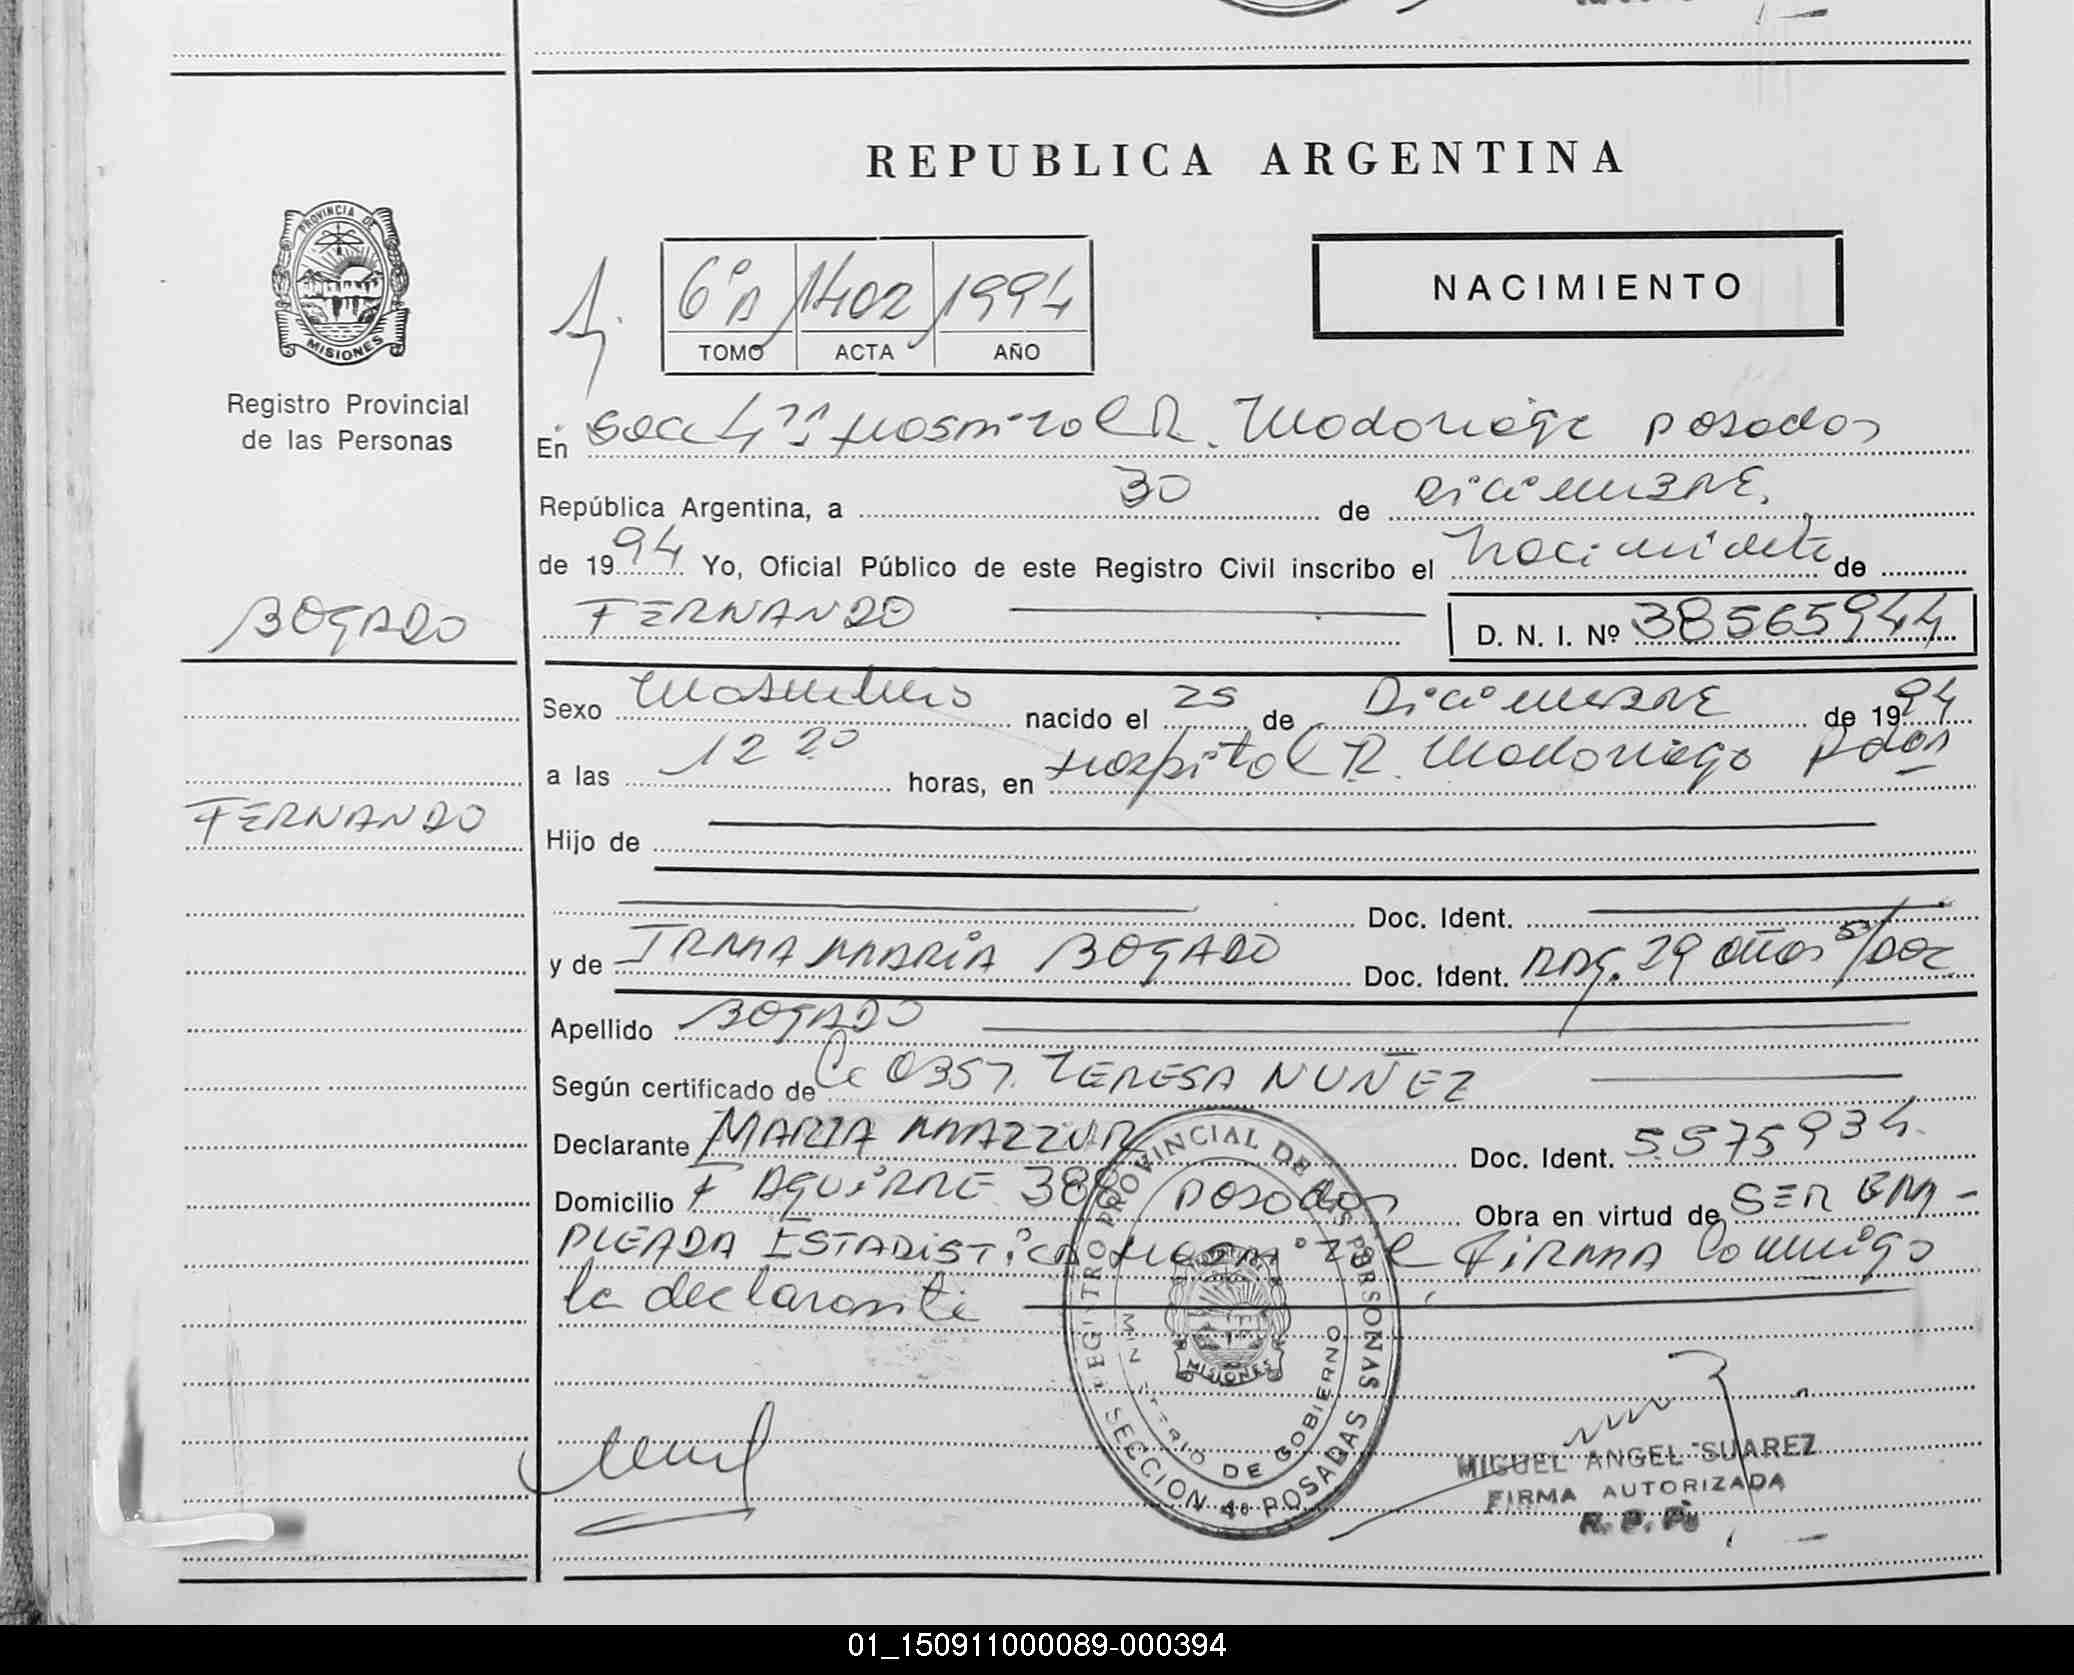 REPUBLICA ARGENTINA
PROVINCIA DE
MISIONES
Registro Provincial
de las Personas
6º A 1402 1994
TOMO ACTA AÑO
NACIMIENTO
En Secc 4ta Hospital R. Madariaga Posadas
República Argentina, a 30 de Diciembre
de 1994 Yo, Oficial Público de este Registro Civil inscribo el Nacimiento de
BOGADO
FERNANDO D. N. I. Nº 38565944
Sexo Masculino nacido el 25 de Diciembre de 1994
a las 12 20 horas, en Hospital R. Madariaga Pdas
FERNANDO
Hijo de
Doc. Ident.
y de IRMA MARIA BOGADO Doc. Ident. ARG. 29 años s/DOC
Apellido BOGADO
Según certificado de OBST. TERESA NUÑEZ
Declarante MARIA MAZZUR Doc. Ident. 5.575934
Domicilio F AGUIRRE Posadas Obra en virtud de SER EM-
PLEADA ESTADISTICA Hospital FIRMA Conmigo
la declarante
REGISTRO PROVINCIAL DE LAS PERSONAS
MINISTERIO DE GOBIERNO
MISIONES
SECCION 4a POSADAS
MIGUEL ANGEL SUAREZ
FIRMA AUTORIZADA
R. P. P.
01_150911000089-000394